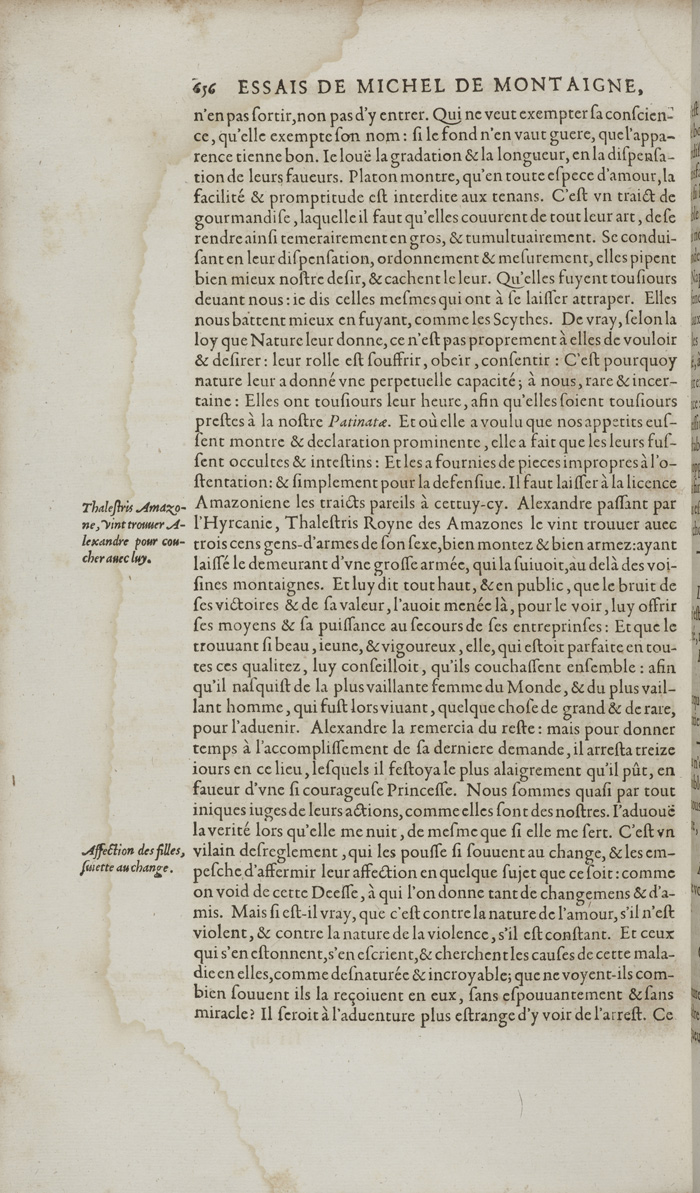 656 ESSAIS DE MICHEL DE MONTAIGNE,
n'en pas ſortir, non pas d'y entrer. Qui ne veut exempter ſa conſcien-
ce, qu'elle exempte ſon nom : ſi le fond n'en vaut guere, que l'appa-
rence tienne bon. Ie louë la gradation & la longueur, en la diſpenſa-
tion de leurs faueurs. Platon montre, qu'en toute eſpece d'amour, la
facilité & promptitude eſt interdite aux tenans. C'eſt vn traict de
gourmandiſe, laquelle il faut qu'elles couurent de tout leur art, de ſe
rendre ainſi temerairement en gros, & tumultuairement. Se condui-
ſant en leur diſpenſation, ordonnement & meſurement, elles pipent
bien mieux noſtre deſir, & cachent le leur. Qu'elles fuyent touſiours
deuant nous : ie dis celles meſmes qui ont à ſe laiſſer attraper. Elles
nous battent mieux en fuyant, comme les Scythes. De vray, ſelon la
loy que Nature leur donne, ce n'eſt pas proprement à elles de vouloir
& deſirer : leur rolle eſt ſouffrir, obeir, conſentir : C'eſt pourquoy
nature leur a donné vne perpetuelle capacité ; à nous, rare & incer-
taine : Elles ont touſiours leur heure, afin qu'elles ſoient touſiours
preſtes à la noſtre Patinatæ. Et où elle a voulu que nos appetits euſ-
ſent montre & declaration prominente, elle a fait que les leurs fuſ-
ſent occultes & inteſtins : Et les a fournies de pieces impropres à l'o-
ſtentation : & ſimplement pour la defenſiue. Il faut laiſſer à la licence
Amazoniene les traicts pareils à cettuy-cy. Alexandre paſſant par
l'Hyrcanie, Thaleſtris Royne des Amazones le vint trouuer auec
trois cens gens-d'armes de ſon ſexe, bien montez & bien armez : ayant
laiſſé le demeurant d'vne groſſe armée, qui la ſuiuoit, au delà des voi-
ſines montaignes. Et luy dit tout haut, & en public, que le bruit de
ſes victoires & de ſa valeur, l'auoit menée là, pour le voir, luy offrir
ſes moyens & ſa puiſſance au ſecours de ſes entreprinſes : Et que le
trouuant ſi beau, ieune, & vigoureux, elle, qui eſtoit parfaite en tou-
tes ces qualitez, luy conſeilloit, qu'ils couchaſſent enſemble : afin
qu'il naſquiſt de la plus vaillante femme du Monde, & du plus vail-
lant homme, qui fuſt lors viuant, quelque choſe de grand & de rare,
pour l'aduenir. Alexandre la remercia du reſte : mais pour donner
temps à l'accompliſſement de ſa derniere demande, il arreſta treize
iours en ce lieu, leſquels il feſtoya le plus alaigrement qu'il pût, en
faueur d'vne ſi courageuſe Princeſſe. Nous ſommes quaſi par tout
iniques iuges de leurs actions, comme elles ſont des noſtres. I'aduouë
la verité lors qu'elle me nuit, de meſme que ſi elle me ſert. C'eſt vn
vilain deſreglement, qui les pouſſe ſi ſouuent au change, & les em-
peſche d'affermir leur affection en quelque ſujet que ce ſoit : comme
on void de cette Deeſſe, à qui l'on donne tant de changemens & d'a-
mis. Mais ſi eſt-il vray, que c'eſt contre la nature de l'amour, s'il n'eſt
violent, & contre la nature de la violence, s'il eſt conſtant. Et ceux
qui s'en eſtonnent, s'en eſcrient, & cherchent les cauſes de cette mala-
die en elles, comme deſnaturée & incroyable ; que ne voyent-ils com-
bien ſouuent ils la reçoiuent en eux, ſans eſpouuantement & ſans
miracle ? Il ſeroit à l'aduenture plus eſtrange d'y voir de l'arreſt. Ce
Thaleſtris Amazo-
ne, vint trouuer A-
lexandre pour cou-
cher auec luy.
Affection des filles,
ſuiette au change.